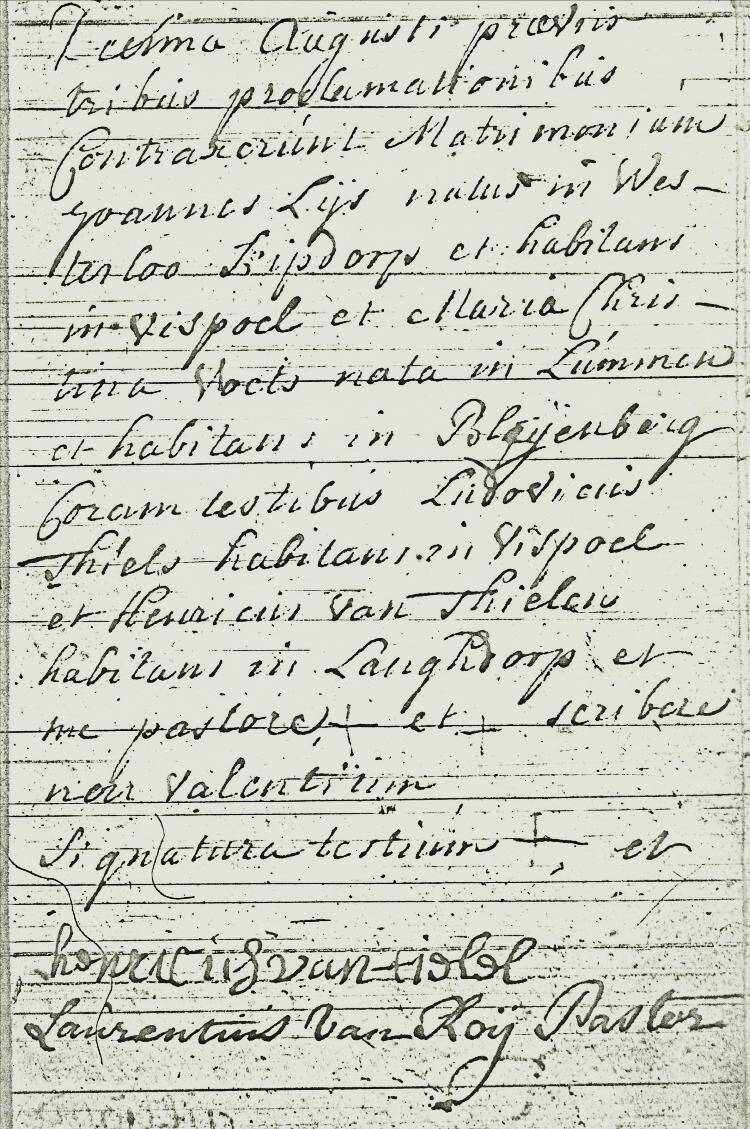 Decima Augusti præviis
tribus proclamationibus
Contraxerunt Matrimonium
Joannes Lijs natus in Wes-
terloo Lipdorp et habitans
in Vispoel et Maria Chris-
tina Voets nata in Lúmmen
et habitans in Bleÿenberg
Coram testibus Ludovicus
Thiels habitans in Vispoel
et Henricus Van Thielen
habitans in Langhdorp et
me pastore + et + scribere
non Valentium
Signatura testium + et
henricus van tielel
Laurentius Van Roÿ Pastor